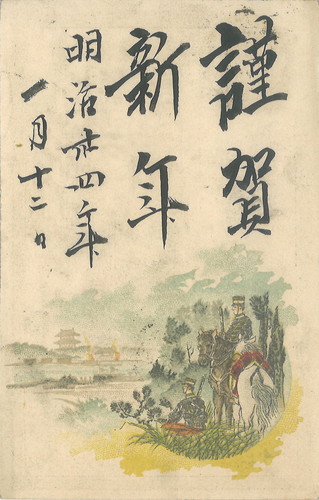 謹賀
新年
明治卅四年
一月十二日